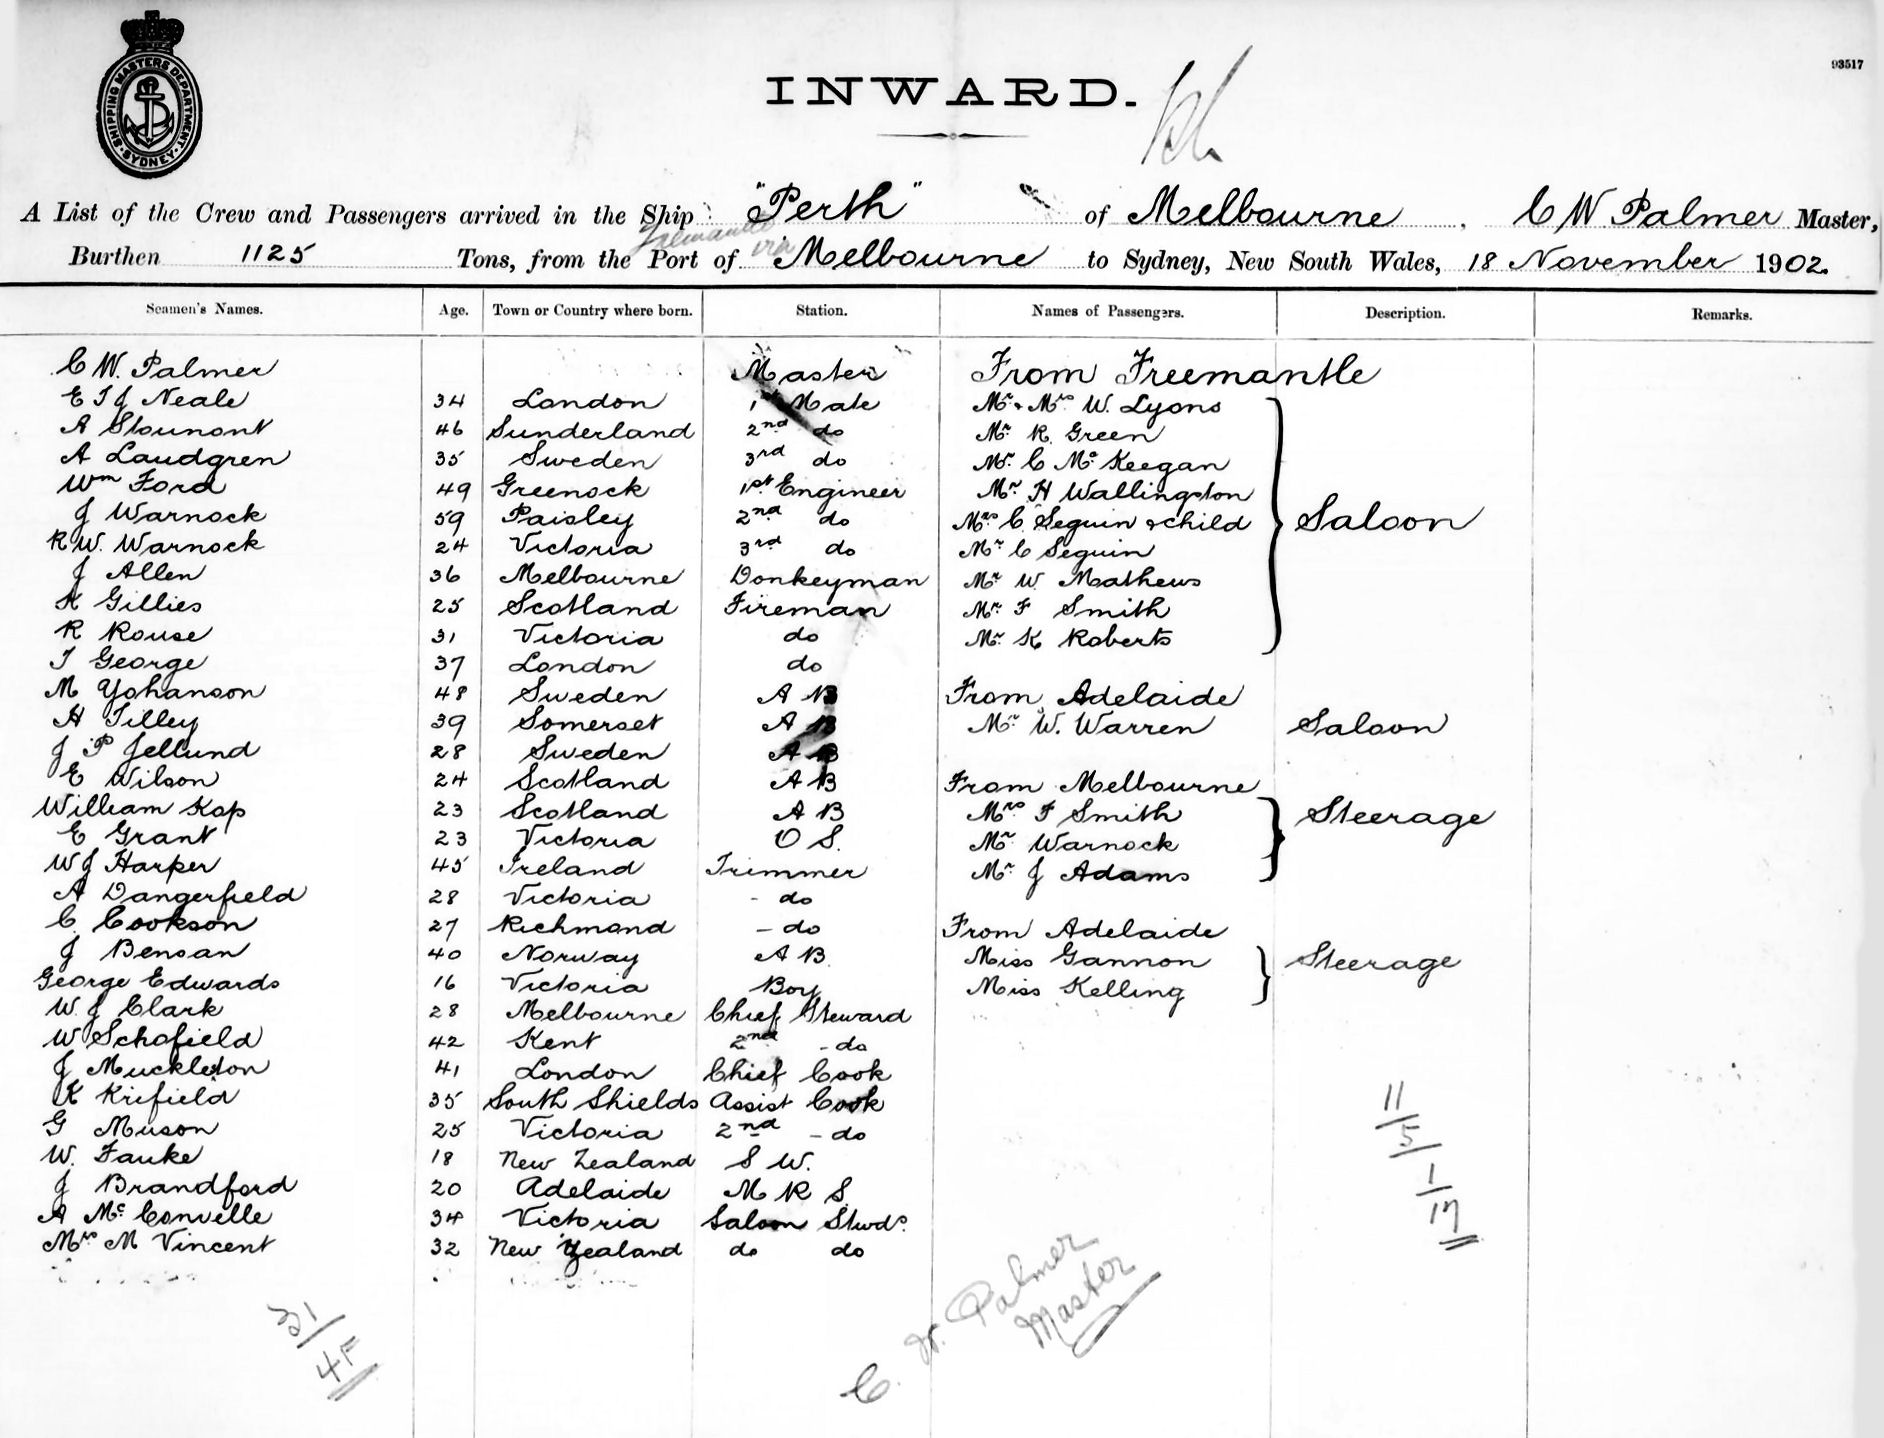 SHIPPING MASTERS DEPARTMENT
SYDNEY
93517
INWARD.
A List of the Crew and Passengers arrived in the Ship "Perth" of Melbourne, C W Palmer Master,
Burthen 1125 Tons, from the Port of via Melbourne to Sydney, New South Wales, 18 November 1902.
Seamen's Names. Age. Town or Country where born. Station. Names of Passengers. Description. Remarks.
C W. Palmer Master From Freemantle
E T J Neale 34 London 1st Mate Mr & Mrs W. Lyons
A Stounont 46 Sunderland 2nd do Mr R. Green
A Laudgren 35 Sweden 3rd do Mr. C Mc Keegan
Wm Ford 49 Greenock 1st Engineer Mr H Wallington
J Warnock 59 Paisley 2nd do Mrs C Seguin & child Saloon
R W. Warnock 24 Victoria 3rd do Mr C Seguin
J Allen 36 Melbourne Donkeyman Mr W Mathews
K Gillies 25 Scotland Fireman Mr F Smith
R Rouse 31 Victoria do Mr. K Roberts
T George 37 London do
M Yohanson 48 Sweden A B From Adelaide
H Tilley 39 Somerset A B Mr W. Warren Saloon
J P Jellund 28 Sweden A B
E Wilson 24 Scotland A B From Melbourne
William Kop 23 Scotland A B Mrs F Smith Steerage
E Grant 23 Victoria O S. Mr Warnock
W J Harper 45 Ireland Trimmer Mr J Adams
A Dangerfield 28 Victoria - do
C. Cookson 27 Richmond - do From Adelaide
J Bensan 40 Norway A B. Miss Gannon Steerage
George Edwards 16 Victoria Boy Miss Kelling
W. J Clark 28 Melbourne Chief Steward
W Schofield 42 Kent 2nd - do
J Muckleton 41 London Chief Cook
K Krifield 35 South Shields Assist Cook
G Muson 25 Victoria 2nd - do
W. Fauke 18 New Zealand S W.
J Brandford 20 Adelaide M R S
A Mc Convelle 34 Victoria Saloon Stwds
Mrs M Vincent 32 New Zealand do do
11/5/1/17
31/4F
C. W. Palmer
Master